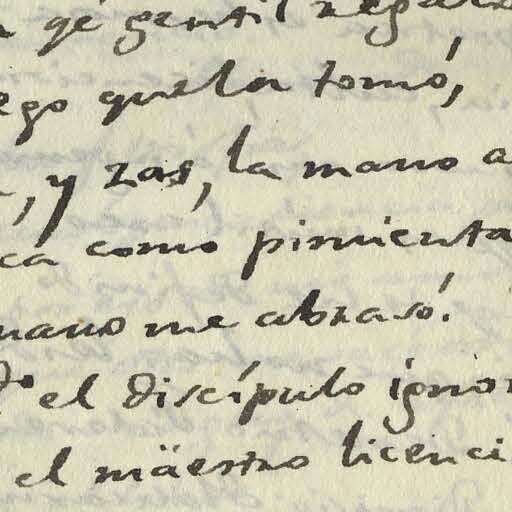 qe gentil
ego que la tomó,
, y zas, la mano a
ca como pimienta
mano me abrasó!
do el discípulo ignor
el mäestro licenci